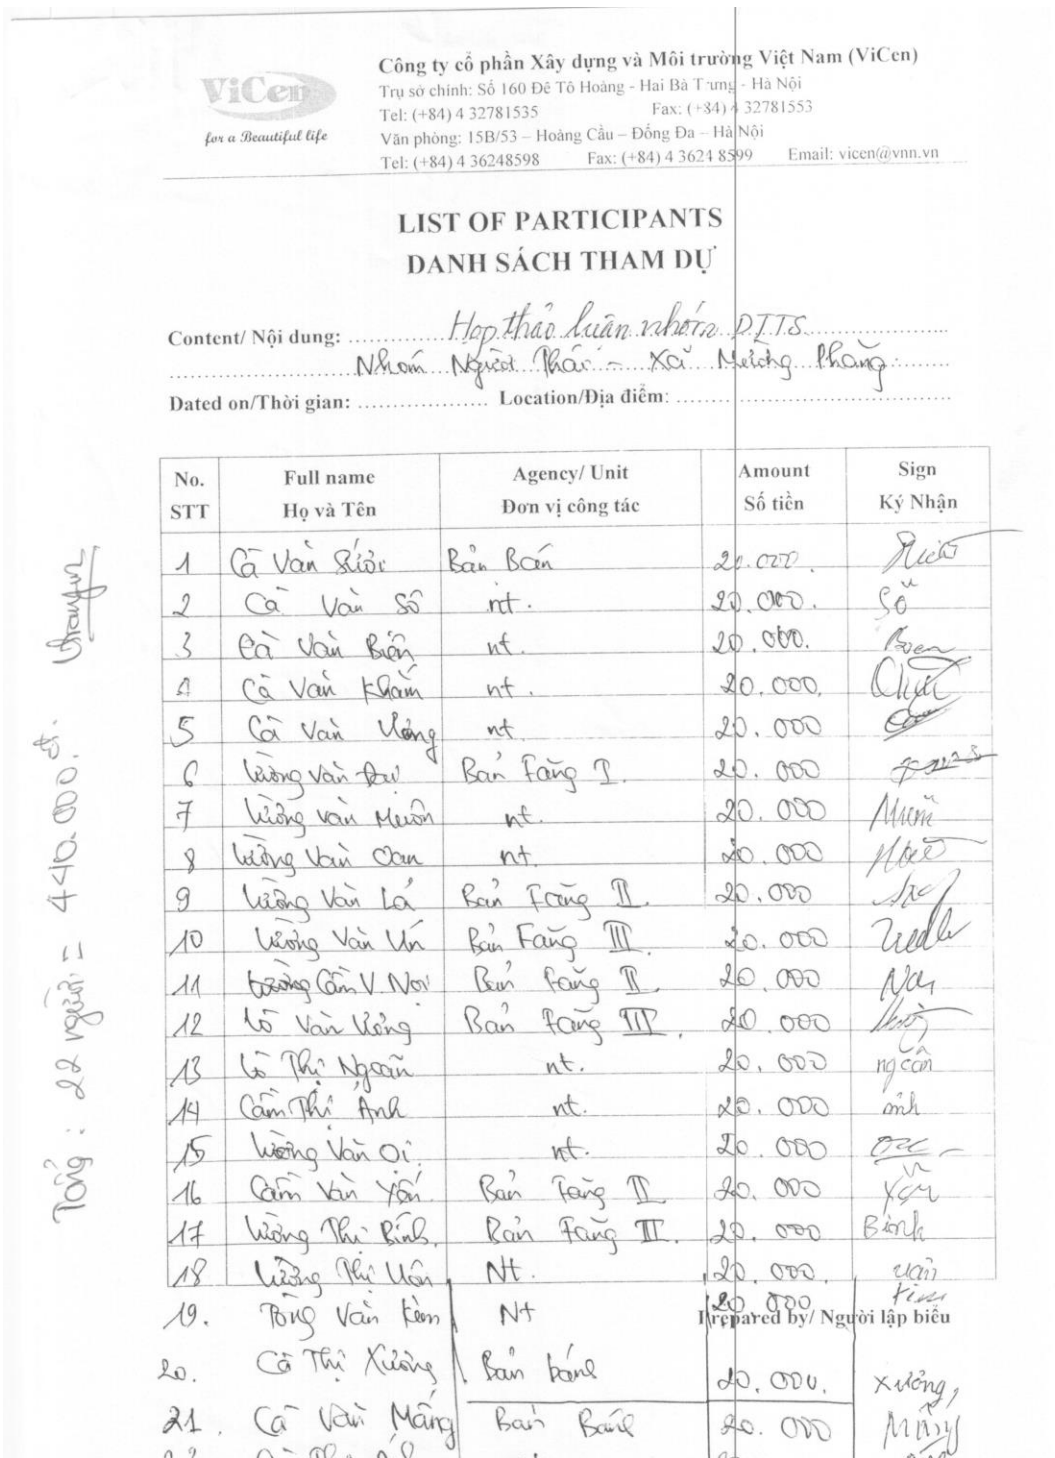 ViCen
for a Beautiful life
Công ty cổ phần Xây dựng và Môi trường Việt Nam (ViCen)
Trụ sở chính: Số 160 Đê Tô Hoàng - Hai Bà Trưng - Hà Nội
Tel: (+84) 4 32781535 Fax: (+84) 4 32781553
Văn phòng: 15B/53 – Hoàng Cầu – Đống Đa – Hà Nội
Tel: (+84) 4 36248598 Fax: (+84) 4 3624 8599 Email: vicen@vnn.vn
LIST OF PARTICIPANTS
DANH SÁCH THAM DỰ
Content/ Nội dung: Họp thảo luận nhóm DTTS
Nhóm Người Thái – Xã Mường Phăng
Dated on/Thời gian: Location/Địa điểm:
No. Full name Agency/ Unit Amount Sign
STT Họ và Tên Đơn vị công tác Số tiền Ký Nhận
1 Cà Văn Bản Bán 20.000
2 Cà Văn Số nt. 20.000. Số
3 Cà Văn Biên nt. 20.000. Bien
4 Cà Văn Khăm nt. 20.000.
5 Cà Văn nt. 20.000
6 Lường Văn Bản Făng I. 20.000
7 Lường Văn Muôn nt. 20.000
8 Lường Văn Oan nt. 20.000
9 Lường Văn Lả Bản Făng II. 20.000
10 Lường Văn Ún Bản Făng III. 20.000
11 Cầm V. Nọi Bản Făng II. 20.000
12 Lò Văn Bản Făng III. 20.000
13 Lò Thị Ngoãn nt. 20.000
14 Cầm Thị Ánh nt. 20.000 ánh
15 Lường Văn Ọi. nt. 20.000
16 Cầm Văn Yến Bản Făng II 20.000
17 Lường Thị Bính. Bản Făng II. 20.000 Binh
18 Lường Thị Nt. 20.000.
19. Tòng Văn Kèm Nt 20.000
Prepared by/ Người lập biểu
20. Cà Thị Xưởng Bản bánh 20.000. Xưởng,
21. Cà Văn Mắng Bản Bánh 20.000
Tổng: 22 người = 440.000.đ.